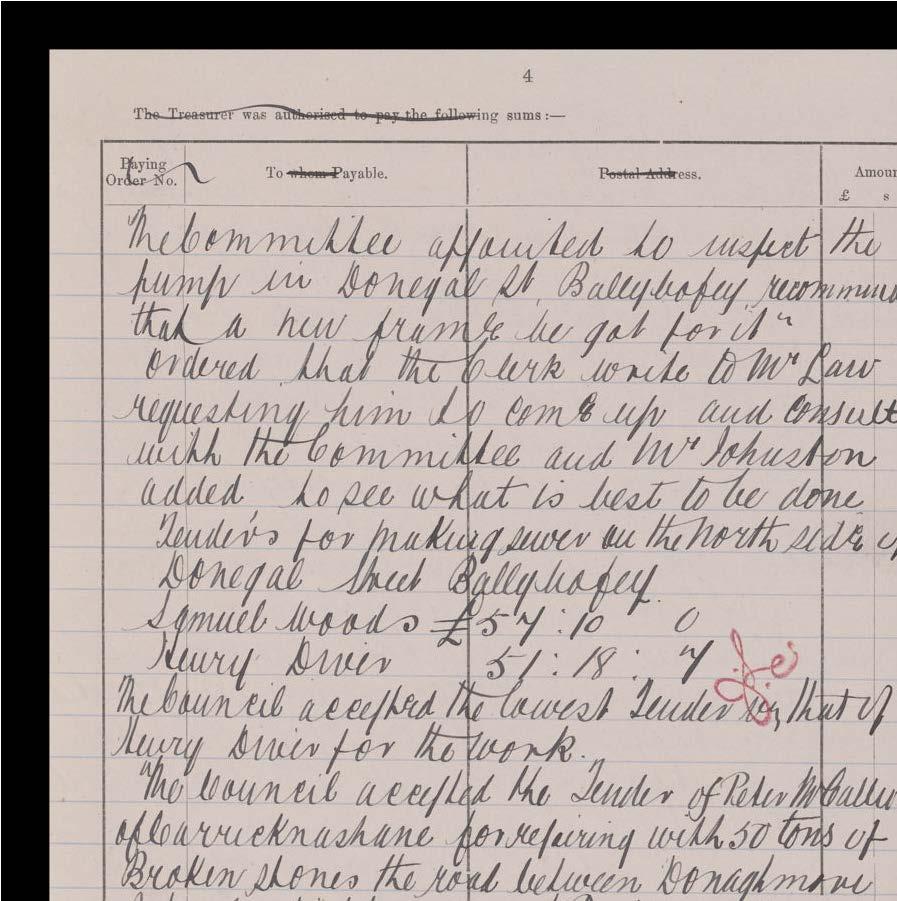 4
The Treasurer was authorised to pay the following sums:—
Paying Order No.
To whom Payable.
Postal Address.
Amoun
£ s
The Committee appointed to inspect the
pump in Donegal St, Ballybofey, recommend
that a new frame be got for it"
Ordered that the Clerk write to Mr Law
requesting him to come up and consult
with the Committee and Mr Johnston
added, to see what is best to be done
Tenders for making sewer on the North side of
Donegal Street Ballybofey.
Samuel Woods £57:10 0
Henry Diver 51:18: 7
The Council accepted the lowest Tender viz, that of
Henry Diver for the work.
The Council accepted the Tender of Peter
of Carricknashane for repairing with 50 tons of
Broken stones the road between Donaghmore